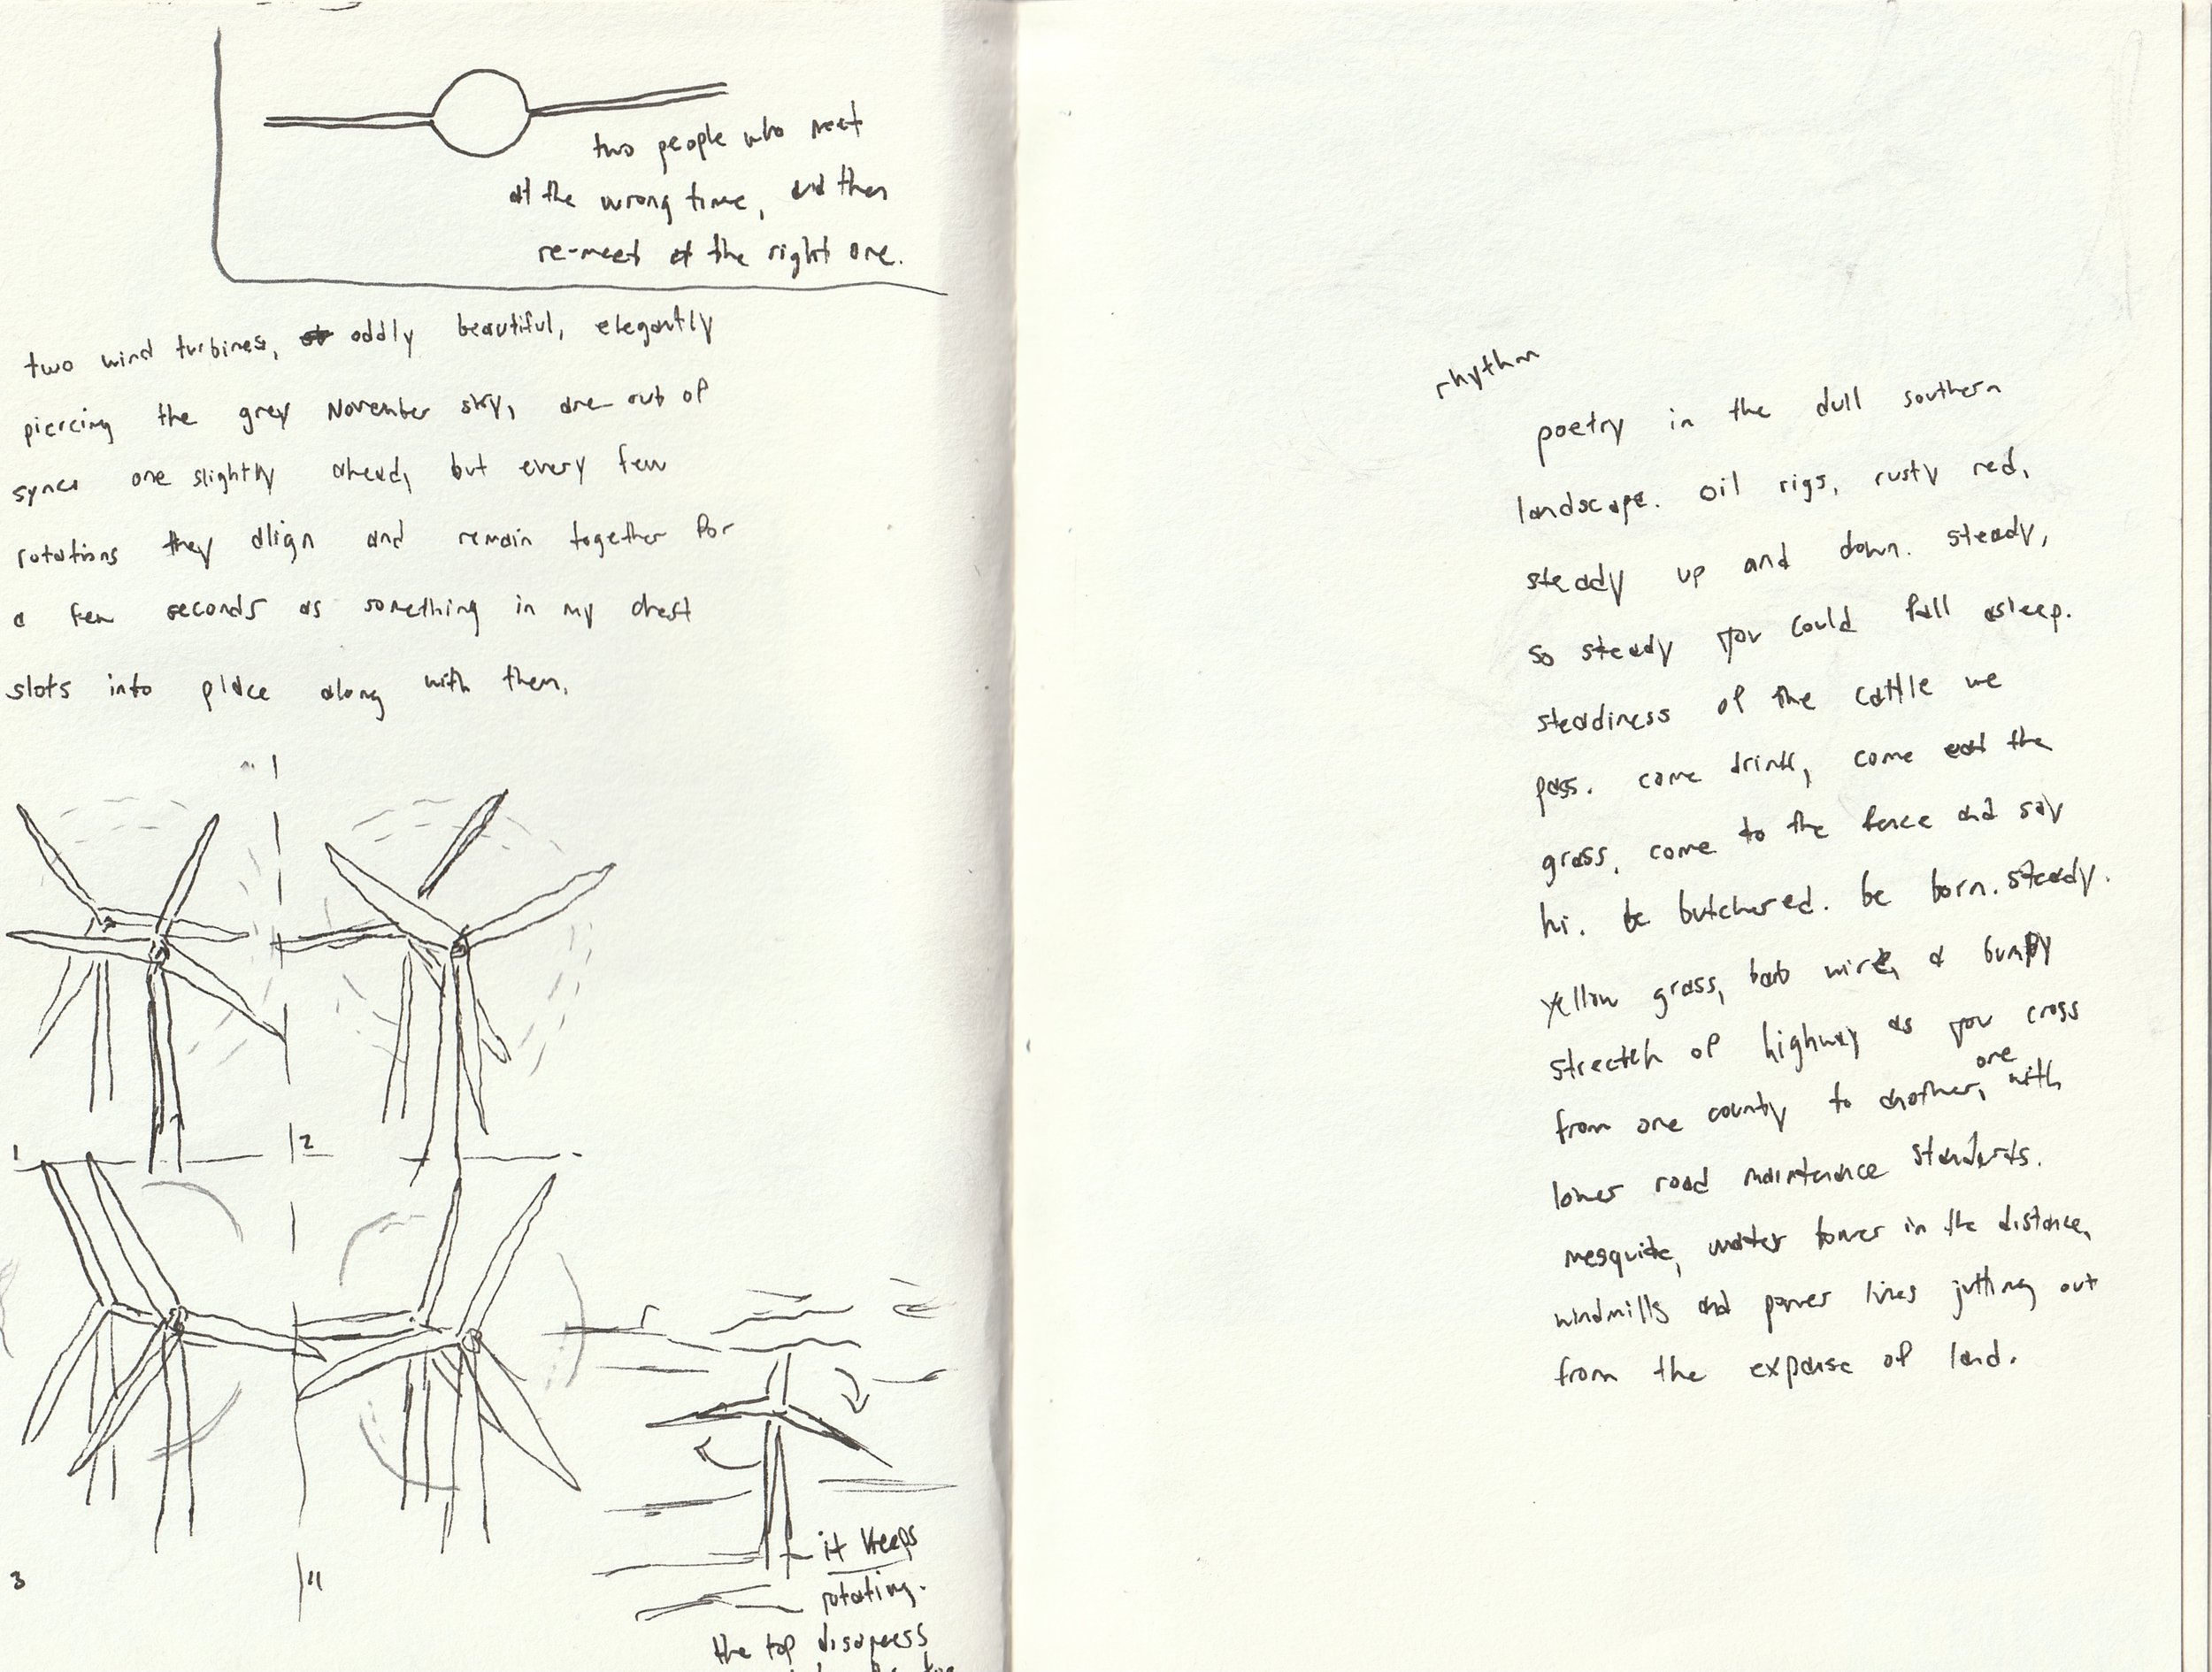 two people who meet
at the wrong time, and then
re-meet at the right one.
two wind turbines, oddly beautiful, elegantly
piercing the grey November sky, are out of
sync, one slightly ahead, but every few
rotations they align and remain together for
a few seconds as something in my chest
slots into place along with them.
1
2
3
4
it keeps
rotating.
the top disapears
rhythm
poetry in the dull southern
landscape. oil rigs, rusty red,
steady up and down. steady,
so steady you could fall asleep.
steadiness of the cattle we
pass. come drink, come eat the
grass, come to the fence and say
hi. be butchered. be born. steady.
yellow grass, barb wire, a bumpy
stretch of highway as you cross
from one county to another, one with
lower road maintenance standerts.
mesquite, water tower in the distance,
windmills and power lines jutting out
from the expanse of land.